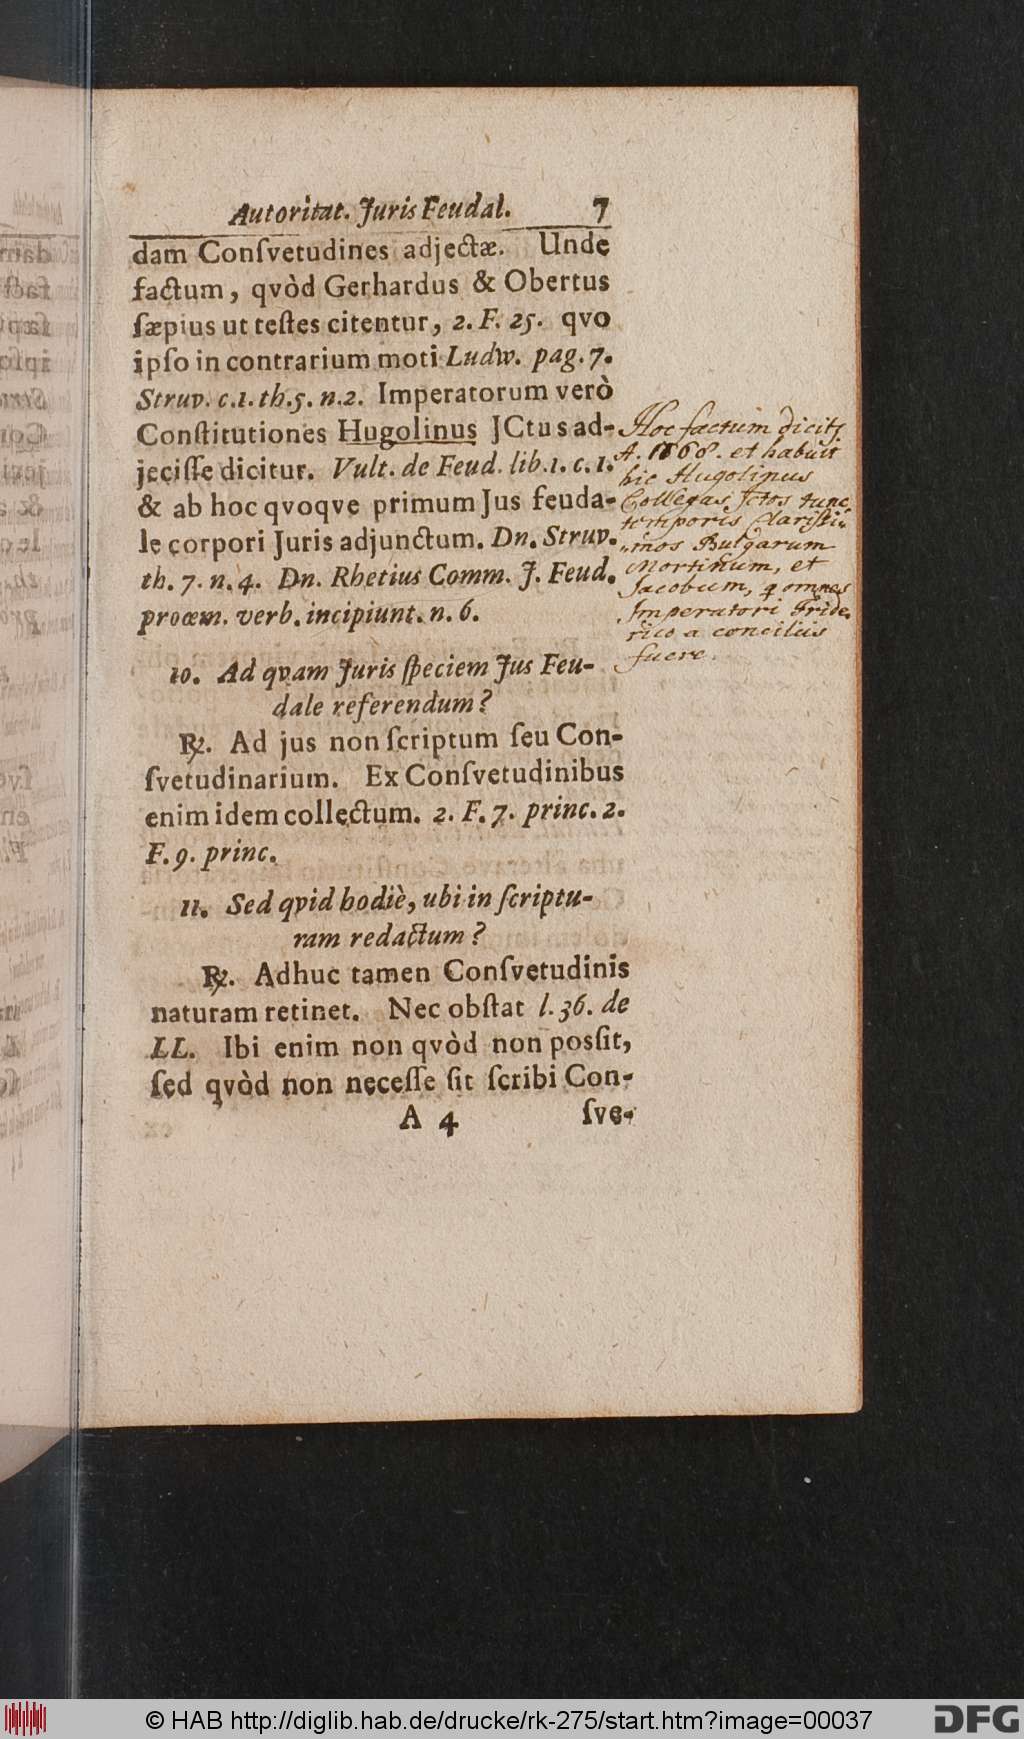 Autoritat. Juris Feudal. 7
dam Conſvetudines adjectæ. Unde
factum, qvòd Gerhardus & Obertus
ſæpius ut teſtes citentur, 2. F. 25. qvo
ipſo in contrarium moti Ludw. pag. 7.
Struv. c.1. th.5. n.2. Imperatorum verò
Conſtitutiones Hugolinus JCtus ad-
jeciſſe dicitur. Vult. de Feud. lib.1. c.1.
& ab hoc qvoqve primum Jus feuda-
le corpori Juris adjunctum. Dn. Struv.
th. 7. n. 4. Dn. Rhetius Comm. J. Feud.
proœm. verb. incipiunt. n. 6.
Hoc factum dicitr
A. 1160. et habuit
hic Hugolinus
Collegas Jctos tunc
temporis Clariſsi-
mos Bulgarum
Martinum, et
Jacobum, q omnes
Imperatori Fride-
rico a conciliis
fuere.
10. Ad qvam Juris ſpeciem Jus Feu-
dale referendum?
℞. Ad jus non ſcriptum ſeu Con-
ſvetudinarium. Ex Conſvetudinibus
enim idem collectum. 2. F. 7. princ. 2.
F. 9. princ.
11. Sed qvid hodiè, ubi in ſcriptu-
ram redactum?
℞. Adhuc tamen Conſvetudinis
naturam retinet. Nec obſtat l. 36. de
LL. Ibi enim non qvòd non posſit,
ſed qvòd non neceſſe ſit ſcribi Con-
A 4 ſve-
© HAB http://diglib.hab.de/drucke/rk-275/start.htm?image=00037
DFG